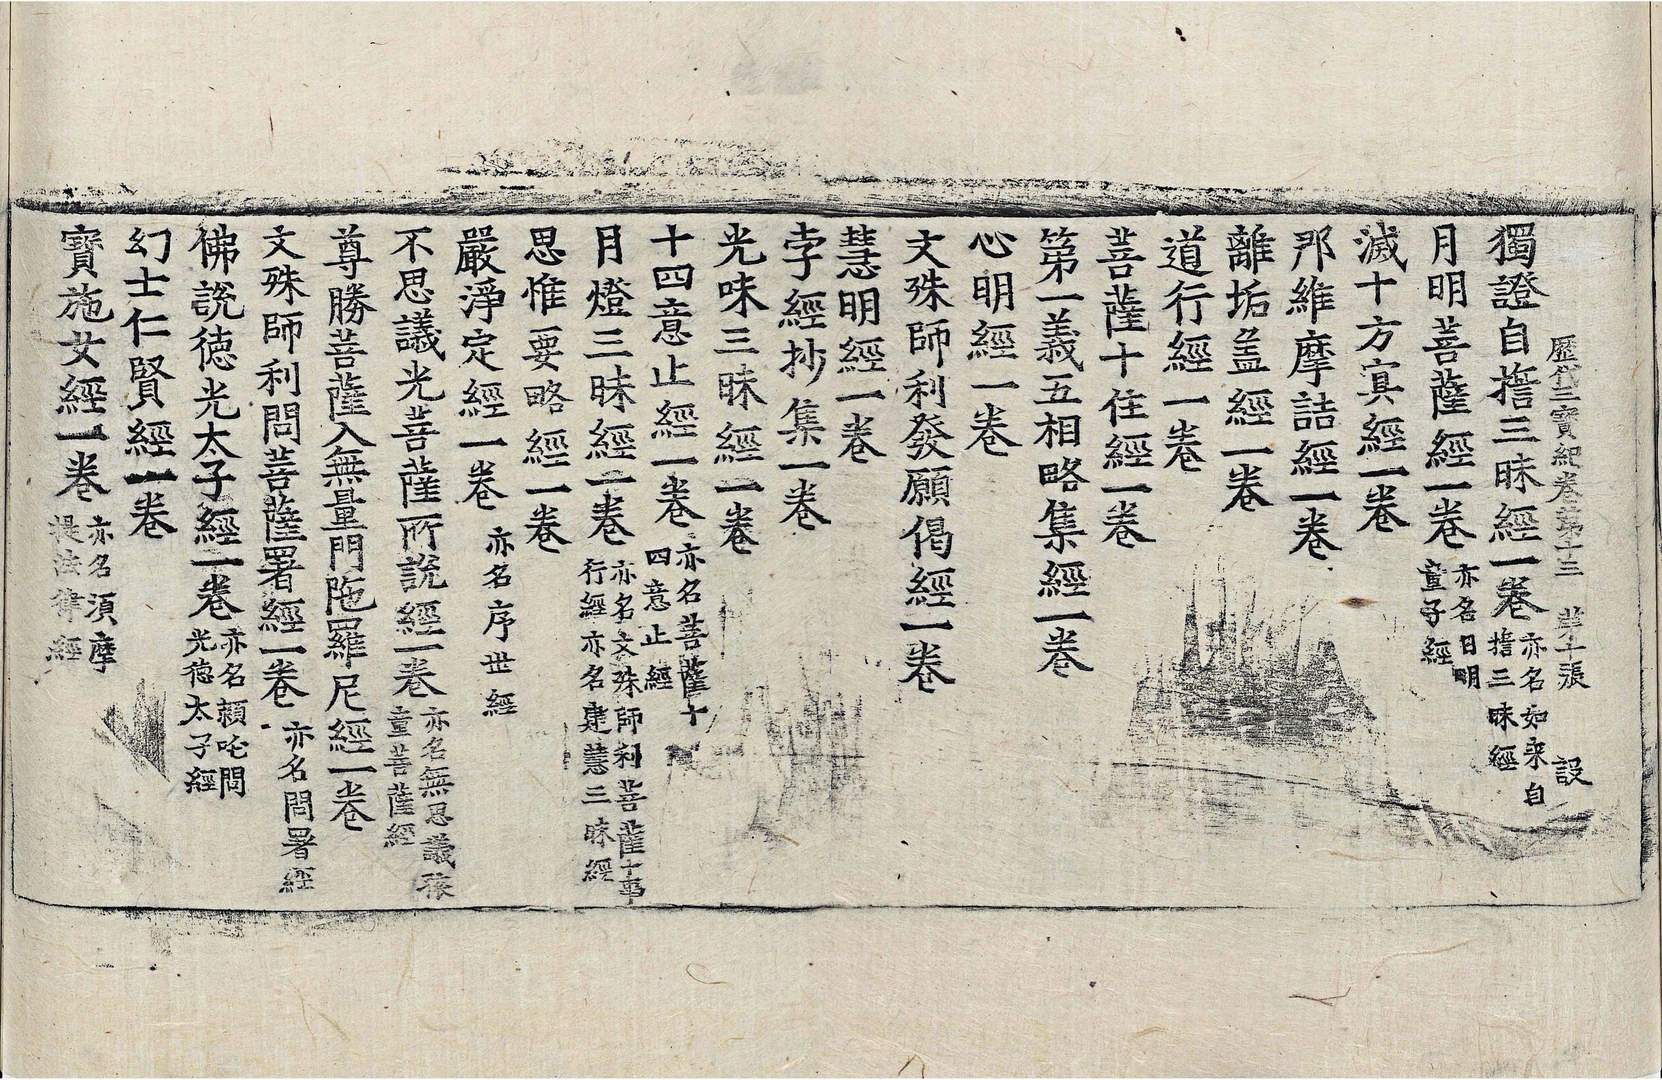 歷代三寶紀卷第十三 第十張 設
獨證自誓三昧經一卷 亦名如來自誓三昧經
月明菩薩經一卷 亦名日明童子經
滅十方冥經一卷
邪維摩詰經一卷
離垢盖經一卷
道行經一卷
菩薩十住經一卷
第一義五相略集經一卷
心明經一卷
文殊師利發願偈經一卷
慧明經一卷
孛經抄集一卷
光味三昧經一卷
十四意止經一卷 亦名菩薩十四意止經
月燈三昧經一卷 亦名文殊師利菩薩十事行經亦名建慧三昧經
思惟要略經一卷
嚴淨定經一卷 亦名序世經
不思議光菩薩所說經一卷 亦名無思議孩童菩薩經
尊勝菩薩入無量門陁羅尼經一卷
文殊師利問菩薩署經一卷 亦名問署經
佛說德光太子經一卷 亦名賴吒問光德太子經
幻士仁賢經一卷
寶施女經一卷 亦名須摩提法律經